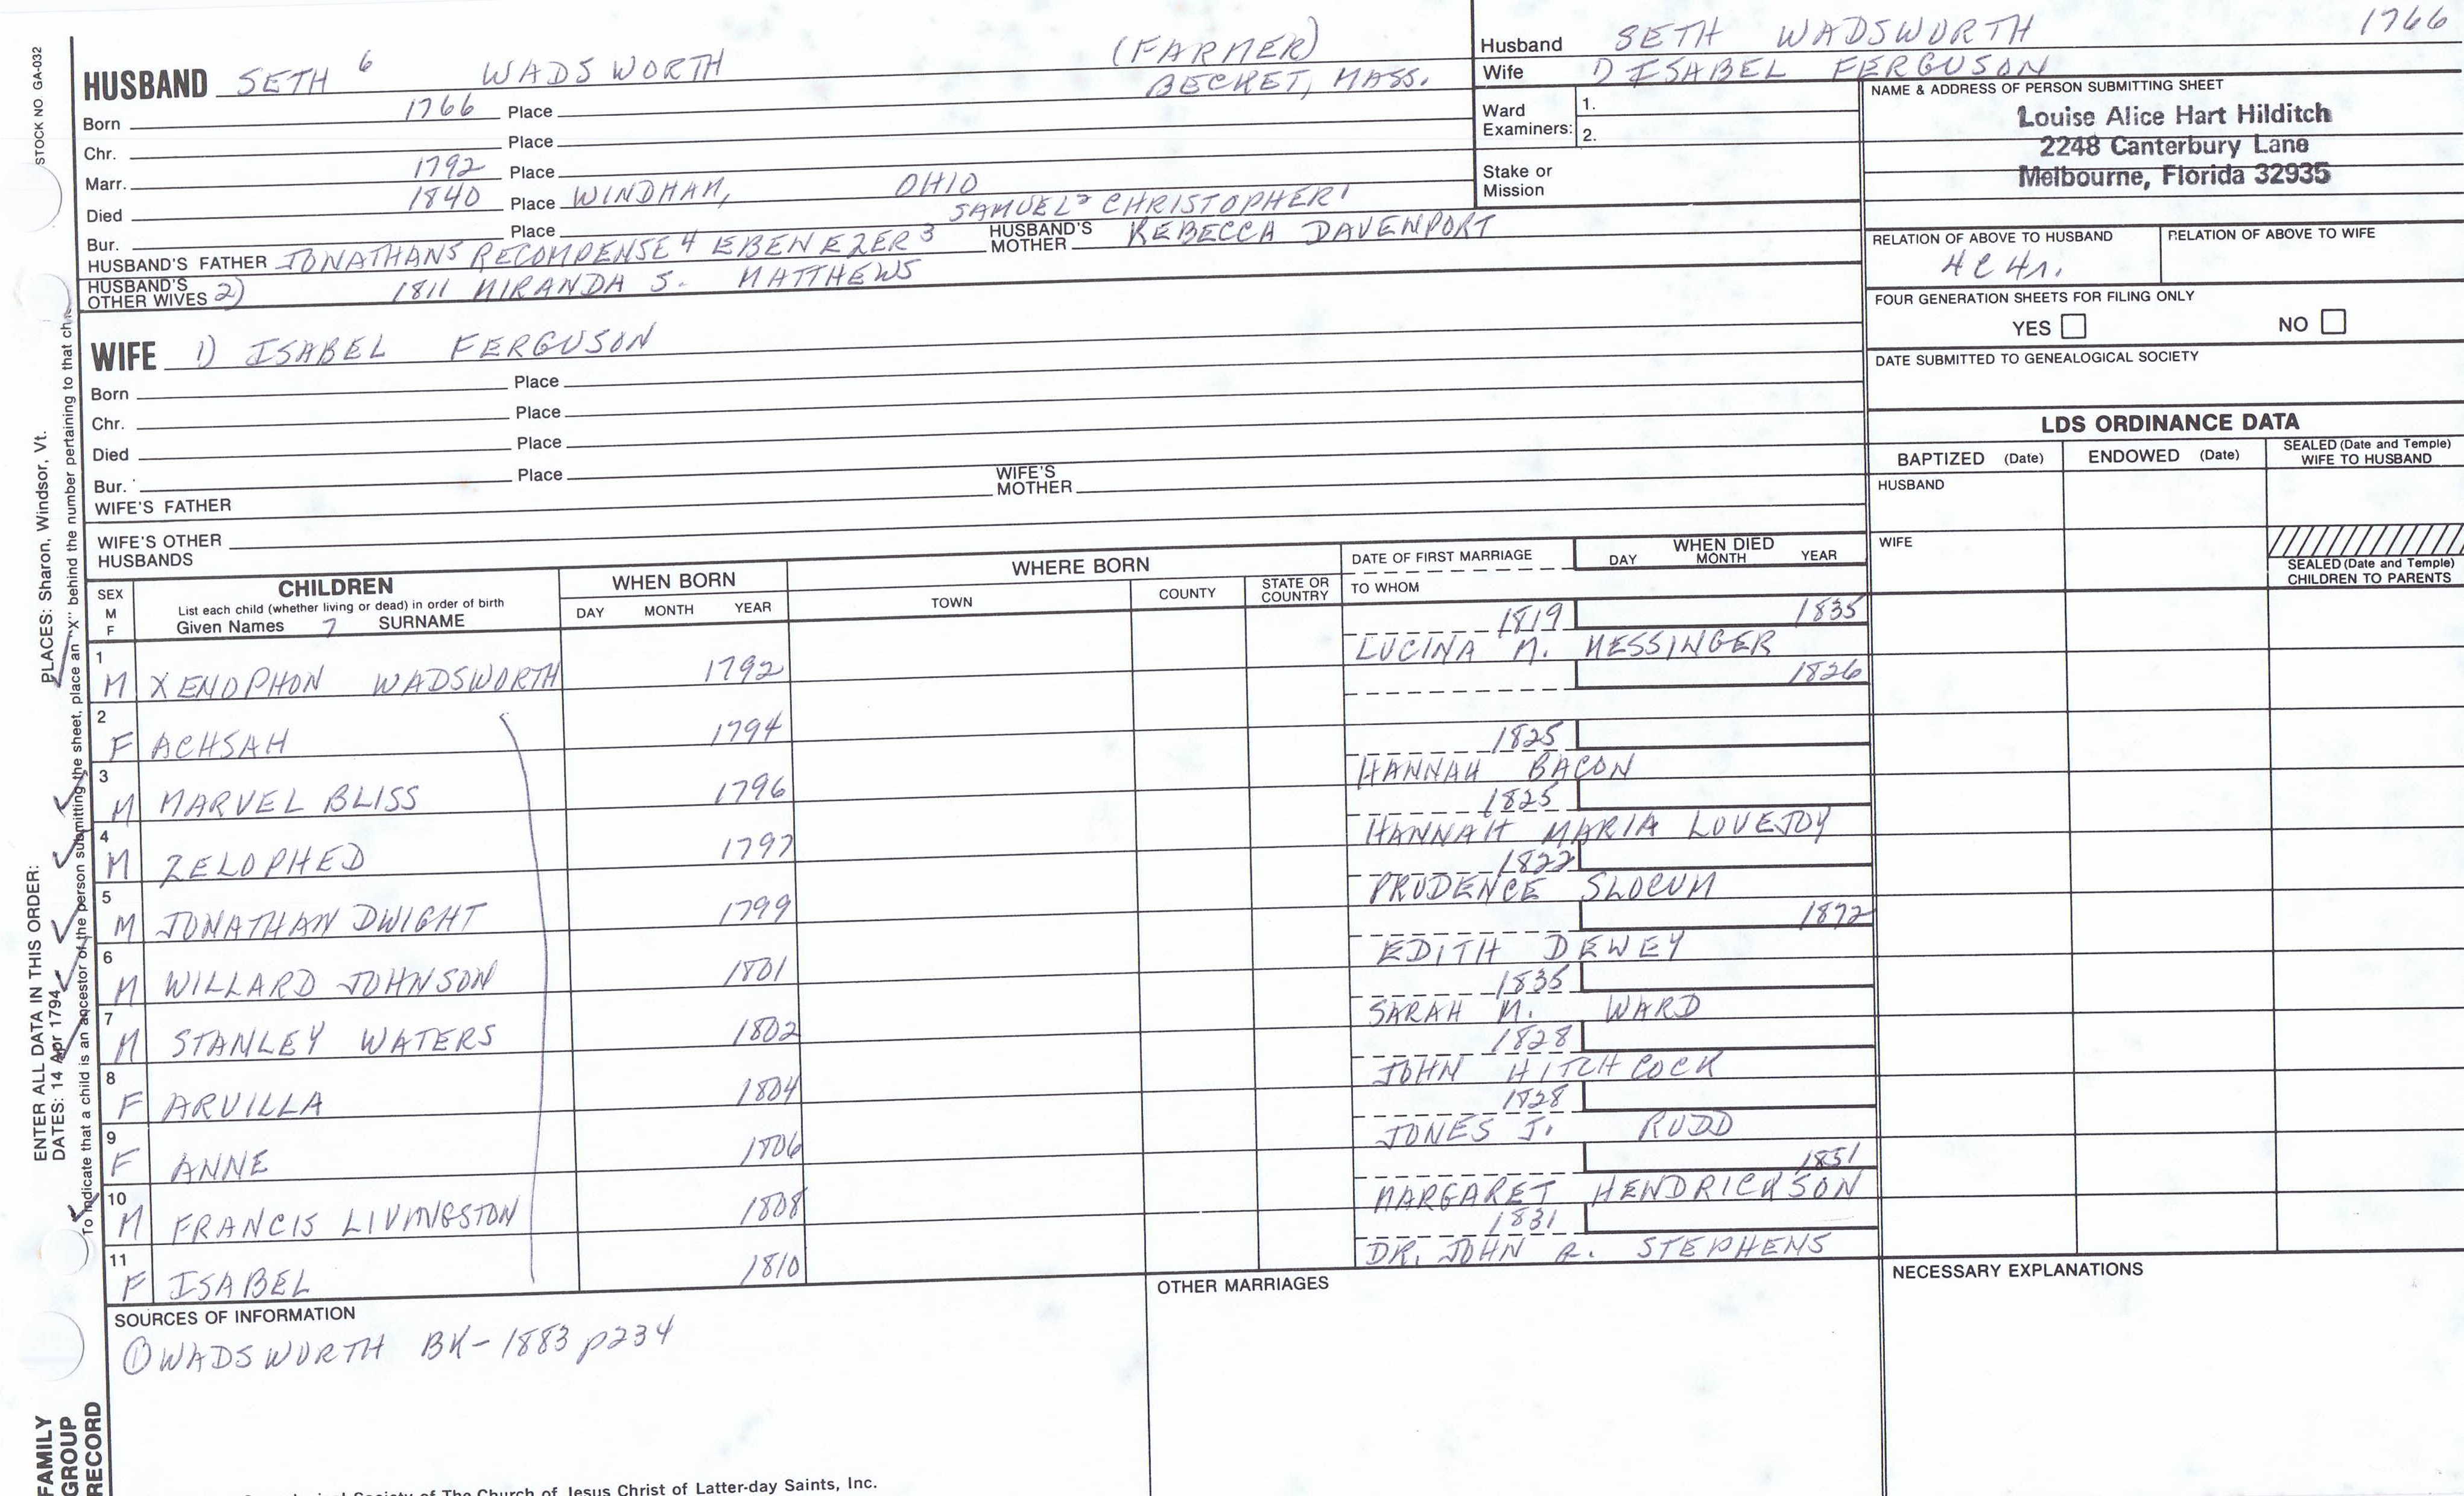 STOCK NO GA-032
HUSBAND SETH 6 WADSWORTH (FARMER)
Born 1766 Place BECKET, MASS.
Chr. Place
Marr. 1792 Place
Died 1840 Place WINDHAM, OHIO
Bur. Place SAMUEL 2 CHRISTOPHER 1
HUSBAND'S FATHER JONATHAN 5 RECOMPENSE 4 EBENEZER 3 HUSBAND'S MOTHER REBECCA DAVENPORT
HUSBAND'S OTHER WIVES 2) 1811 MIRANDA S. MATTHEWS
WIFE 1) ISABEL FERGUSON
Born Place
Chr. Place
Died Place
Bur. Place
WIFE'S FATHER WIFE'S MOTHER
WIFE'S OTHER HUSBANDS
Husband SETH WADSWORTH 1766
Wife 1) ISABEL FERGUSON
Ward Examiners: 1. 2.
Stake or Mission
NAME & ADDRESS OF PERSON SUBMITTING SHEET
Louise Alice Hart Hilditch
2248 Canterbury Lane
Melbourne, Florida 32935
RELATION OF ABOVE TO HUSBAND RELATION OF ABOVE TO WIFE
4C4r.
FOUR GENERATION SHEETS FOR FILING ONLY
YES NO
DATE SUBMITTED TO GENEALOGICAL SOCIETY
LDS ORDINANCE DATA
BAPTIZED (Date) ENDOWED (Date) SEALED (Date and Temple) WIFE TO HUSBAND
HUSBAND
WIFE
SEALED (Date and Temple) CHILDREN TO PARENTS
SEX M F
CHILDREN
List each child (whether living or dead) in order of birth
Given Names 7 SURNAME
WHEN BORN
DAY MONTH YEAR
WHERE BORN
TOWN COUNTY STATE OR COUNTRY
DATE OF FIRST MARRIAGE
TO WHOM
WHEN DIED
DAY MONTH YEAR
1 M XENOPHON WADSWORTH 1792 1819 1835
LUCINA M. MESSINGER
2 F ACHSAH 1794 1826
3 M MARVEL BLISS 1796 1825
HANNAH BACON
4 M ZELOPHED 1797 1825
HANNAH MARIA LOVEJOY
5 M JONATHAN DWIGHT 1799 1822
PRUDENCE SLOCUM
6 M WILLARD JOHNSON 1801 1872
EDITH DEWEY
7 M STANLEY WATERS 1802 1835
SARAH M. WARD
8 F ARVILLA 1804 1828
JOHN HITCHCOCK
9 F ANNE 1806 1828
JONES J. RUDD
10 M FRANCIS LIVINGSTON 1808 1851
MARGARET HENDRICKSON
11 F ISABEL 1810 1831
DR. JOHN R. STEPHENS
SOURCES OF INFORMATION
① WADSWORTH BK-1883 p234
OTHER MARRIAGES
NECESSARY EXPLANATIONS
ENTER ALL DATA IN THIS ORDER:
DATES: 14 Apr 1794
PLACES: Sharon, Windsor, Vt.
To indicate that a child is an ancestor of the person submitting the sheet, place an "X" behind the number pertaining to that
FAMILY GROUP RECORD
Society of The Church of Jesus Christ of Latter-day Saints, Inc.